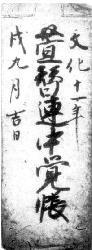 文化十一年
萱𫝶連中覚帳
戌九月吉日